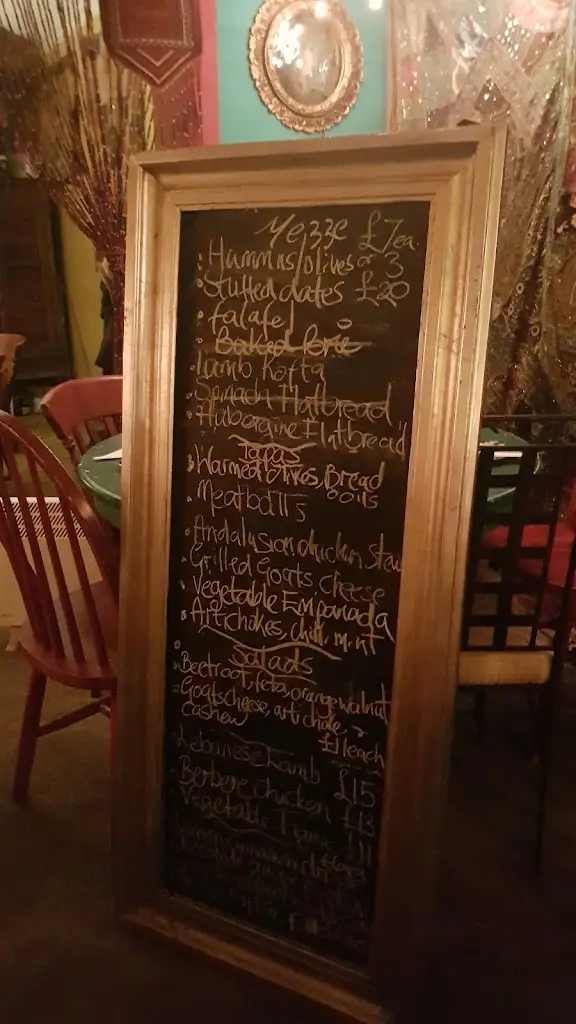 Mezze £7ea.
• Hummus/olives or 3
• Stuffed dates £20
• falafel
• Baked Brie
• Lamb Kofta
• Spinach Flatbread
• Auborgine Flatbread
Tapas
• Warmed olives, Bread & oils
• Meatballs
• Andalusian chicken stew
• Grilled Goats cheese
• Vegetable Empanada
• Artichokes, chilli, mint
Salads
• Beetroot, feta, orange walnut
• Goats cheese, artichoke &
cashew £11 each
• Lebanese Lamb £15
Berbere chicken £13
Vegetable £11